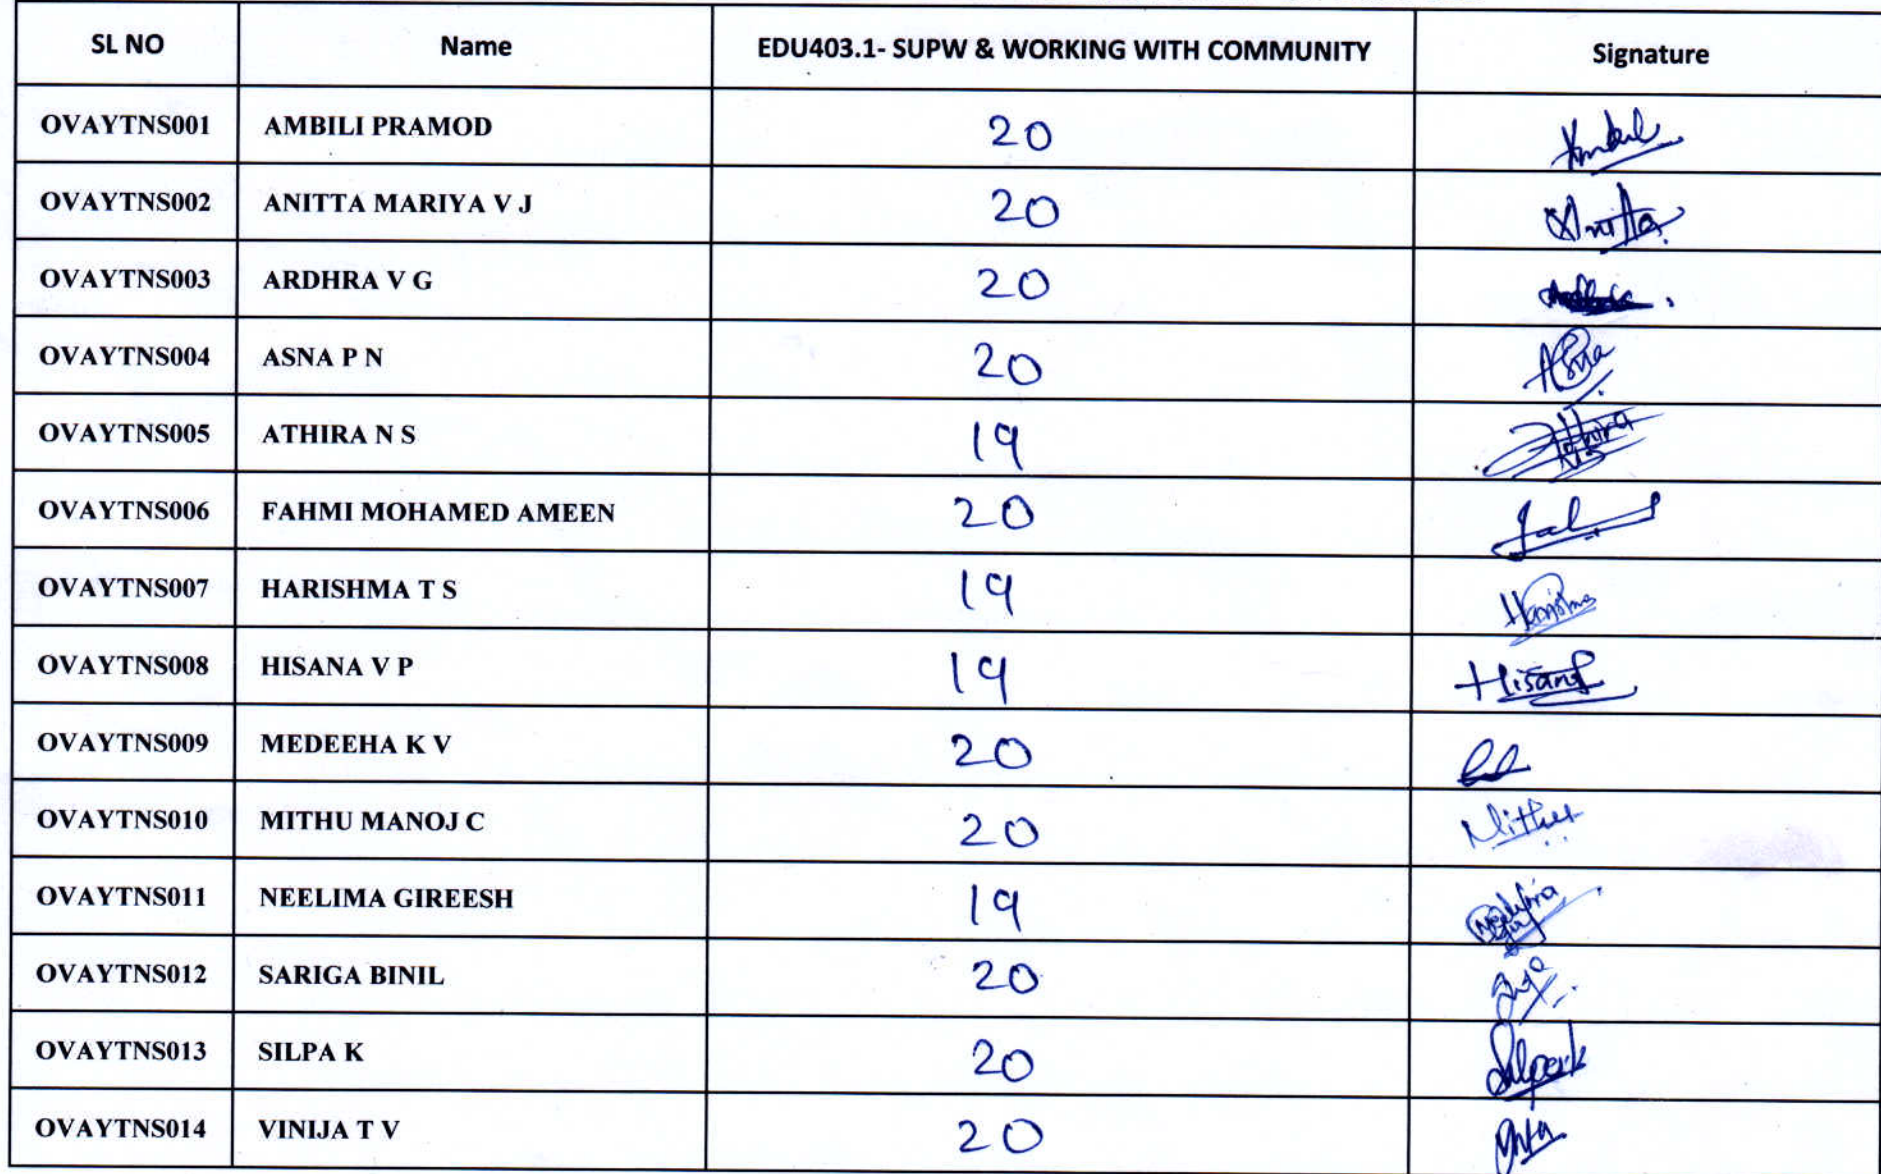 SL NO Name EDU403.1- SUPW & WORKING WITH COMMUNITY Signature
OVAYTNS001 AMBILI PRAMOD 20
OVAYTNS002 ANITTA MARIYA V J 20 Anitta
OVAYTNS003 ARDHRA V G 20
OVAYTNS004 ASNA P N 20 Asna
OVAYTNS005 ATHIRA N S 19 Athira
OVAYTNS006 FAHMI MOHAMED AMEEN 20
OVAYTNS007 HARISHMA T S 19 Harishma
OVAYTNS008 HISANA V P 19 Hisana
OVAYTNS009 MEDEEHA K V 20
OVAYTNS010 MITHU MANOJ C 20 Mithu
OVAYTNS011 NEELIMA GIREESH 19
OVAYTNS012 SARIGA BINIL 20
OVAYTNS013 SILPA K 20 Silpa k
OVAYTNS014 VINIJA T V 20